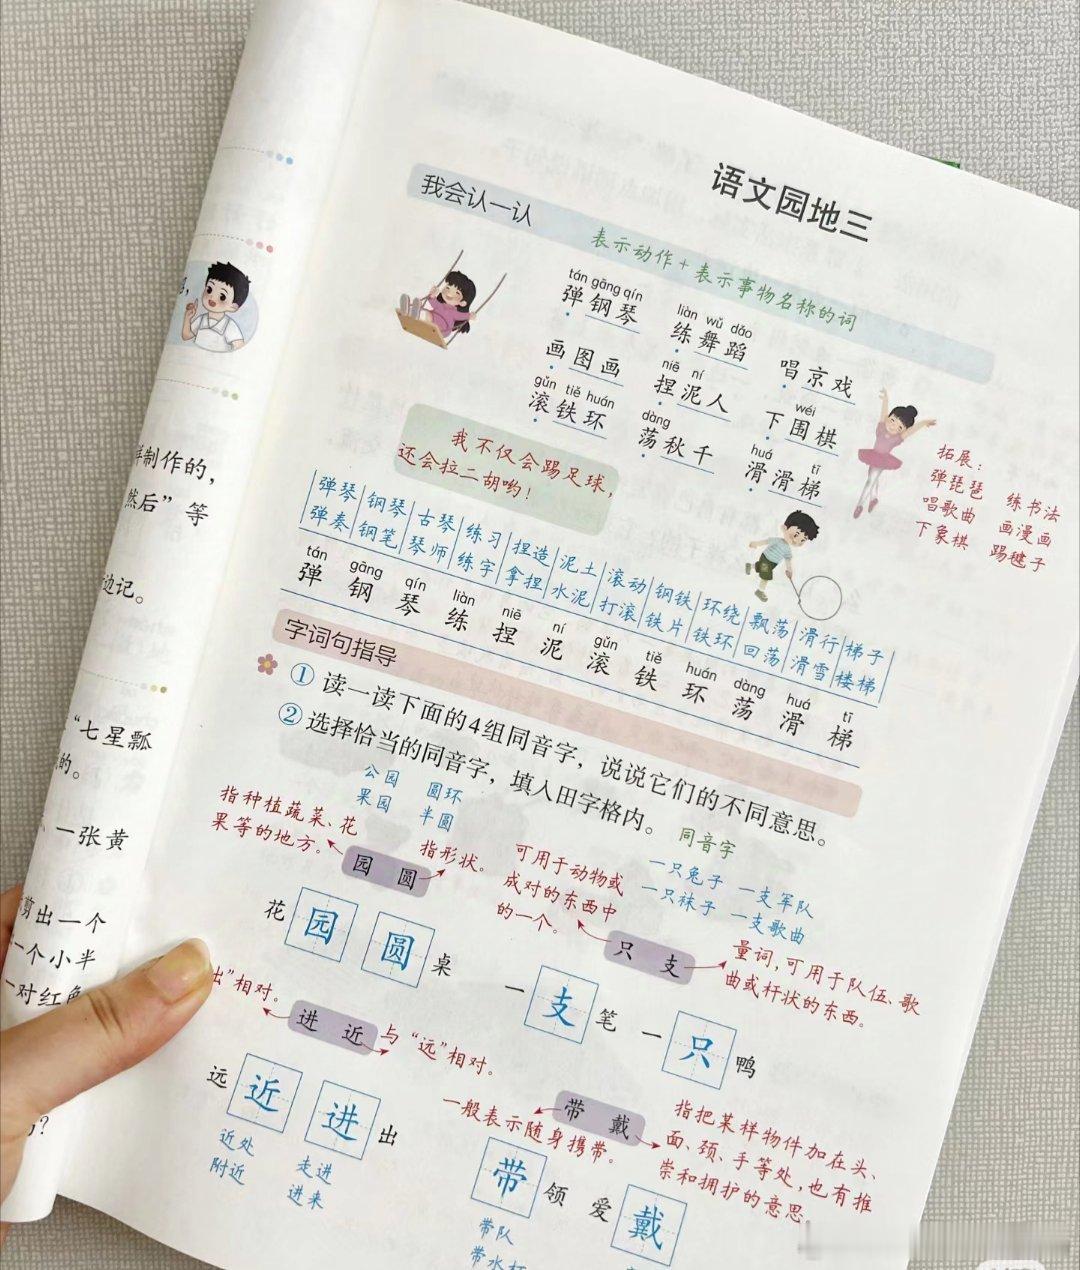 语文园地三
我会认一认
表示动作+表示事物名称的词
tán gāng qín
弹钢琴
liàn wǔ dǎo
练舞蹈
唱京戏
画图画
niē ní
捏泥人
wéi
下围棋
gǔn tiě huán
滚铁环
dàng
荡秋千
huá tī
滑滑梯
我不仅会踢足球,
还会拉二胡哟!
拓展:
弹琵琶 练书法
唱歌曲 画漫画
下象棋 踢毽子
弹琴 钢琴 古琴 练习 捏造 泥土 滚动 钢铁 环绕 飘荡 滑行 梯子
弹奏 钢笔 琴师 练字 拿捏 水泥 打滚 铁片 铁环 回荡 滑雪 楼梯
tán gāng qín liàn niē ní gǔn tiě huán dàng huá tī
弹 钢 琴 练 捏 泥 滚 铁 环 荡 滑 梯
字词句指导
① 读一读下面的4组同音字,说说它们的不同意思。
② 选择恰当的同音字,填入田字格内。
同音字
公园 圆环
果园 半圆
指种植蔬菜、花
果等的地方。
指形状。
园 圆
花园 圆桌
可用于动物或
成对的东西中
的一个。
一只兔子 一支军队
一只袜子 一支歌曲
只 支
量词,可用于队伍、歌
曲或杆状的东西。
一支笔 一只鸭
出”相对。
进 近
与“远”相对。
远近 进出
近处 走进
附近 进来
一般表示随身携带。
带 戴
指把某样物件加在头、
面、颈、手等处,也有推
崇和拥护的意思
带领 爱戴
带队
带水杯
样制作的,
然后”等
边记。
“七星瓢
的。
、一张黄
剪出一个
一个小半
一对红色
?